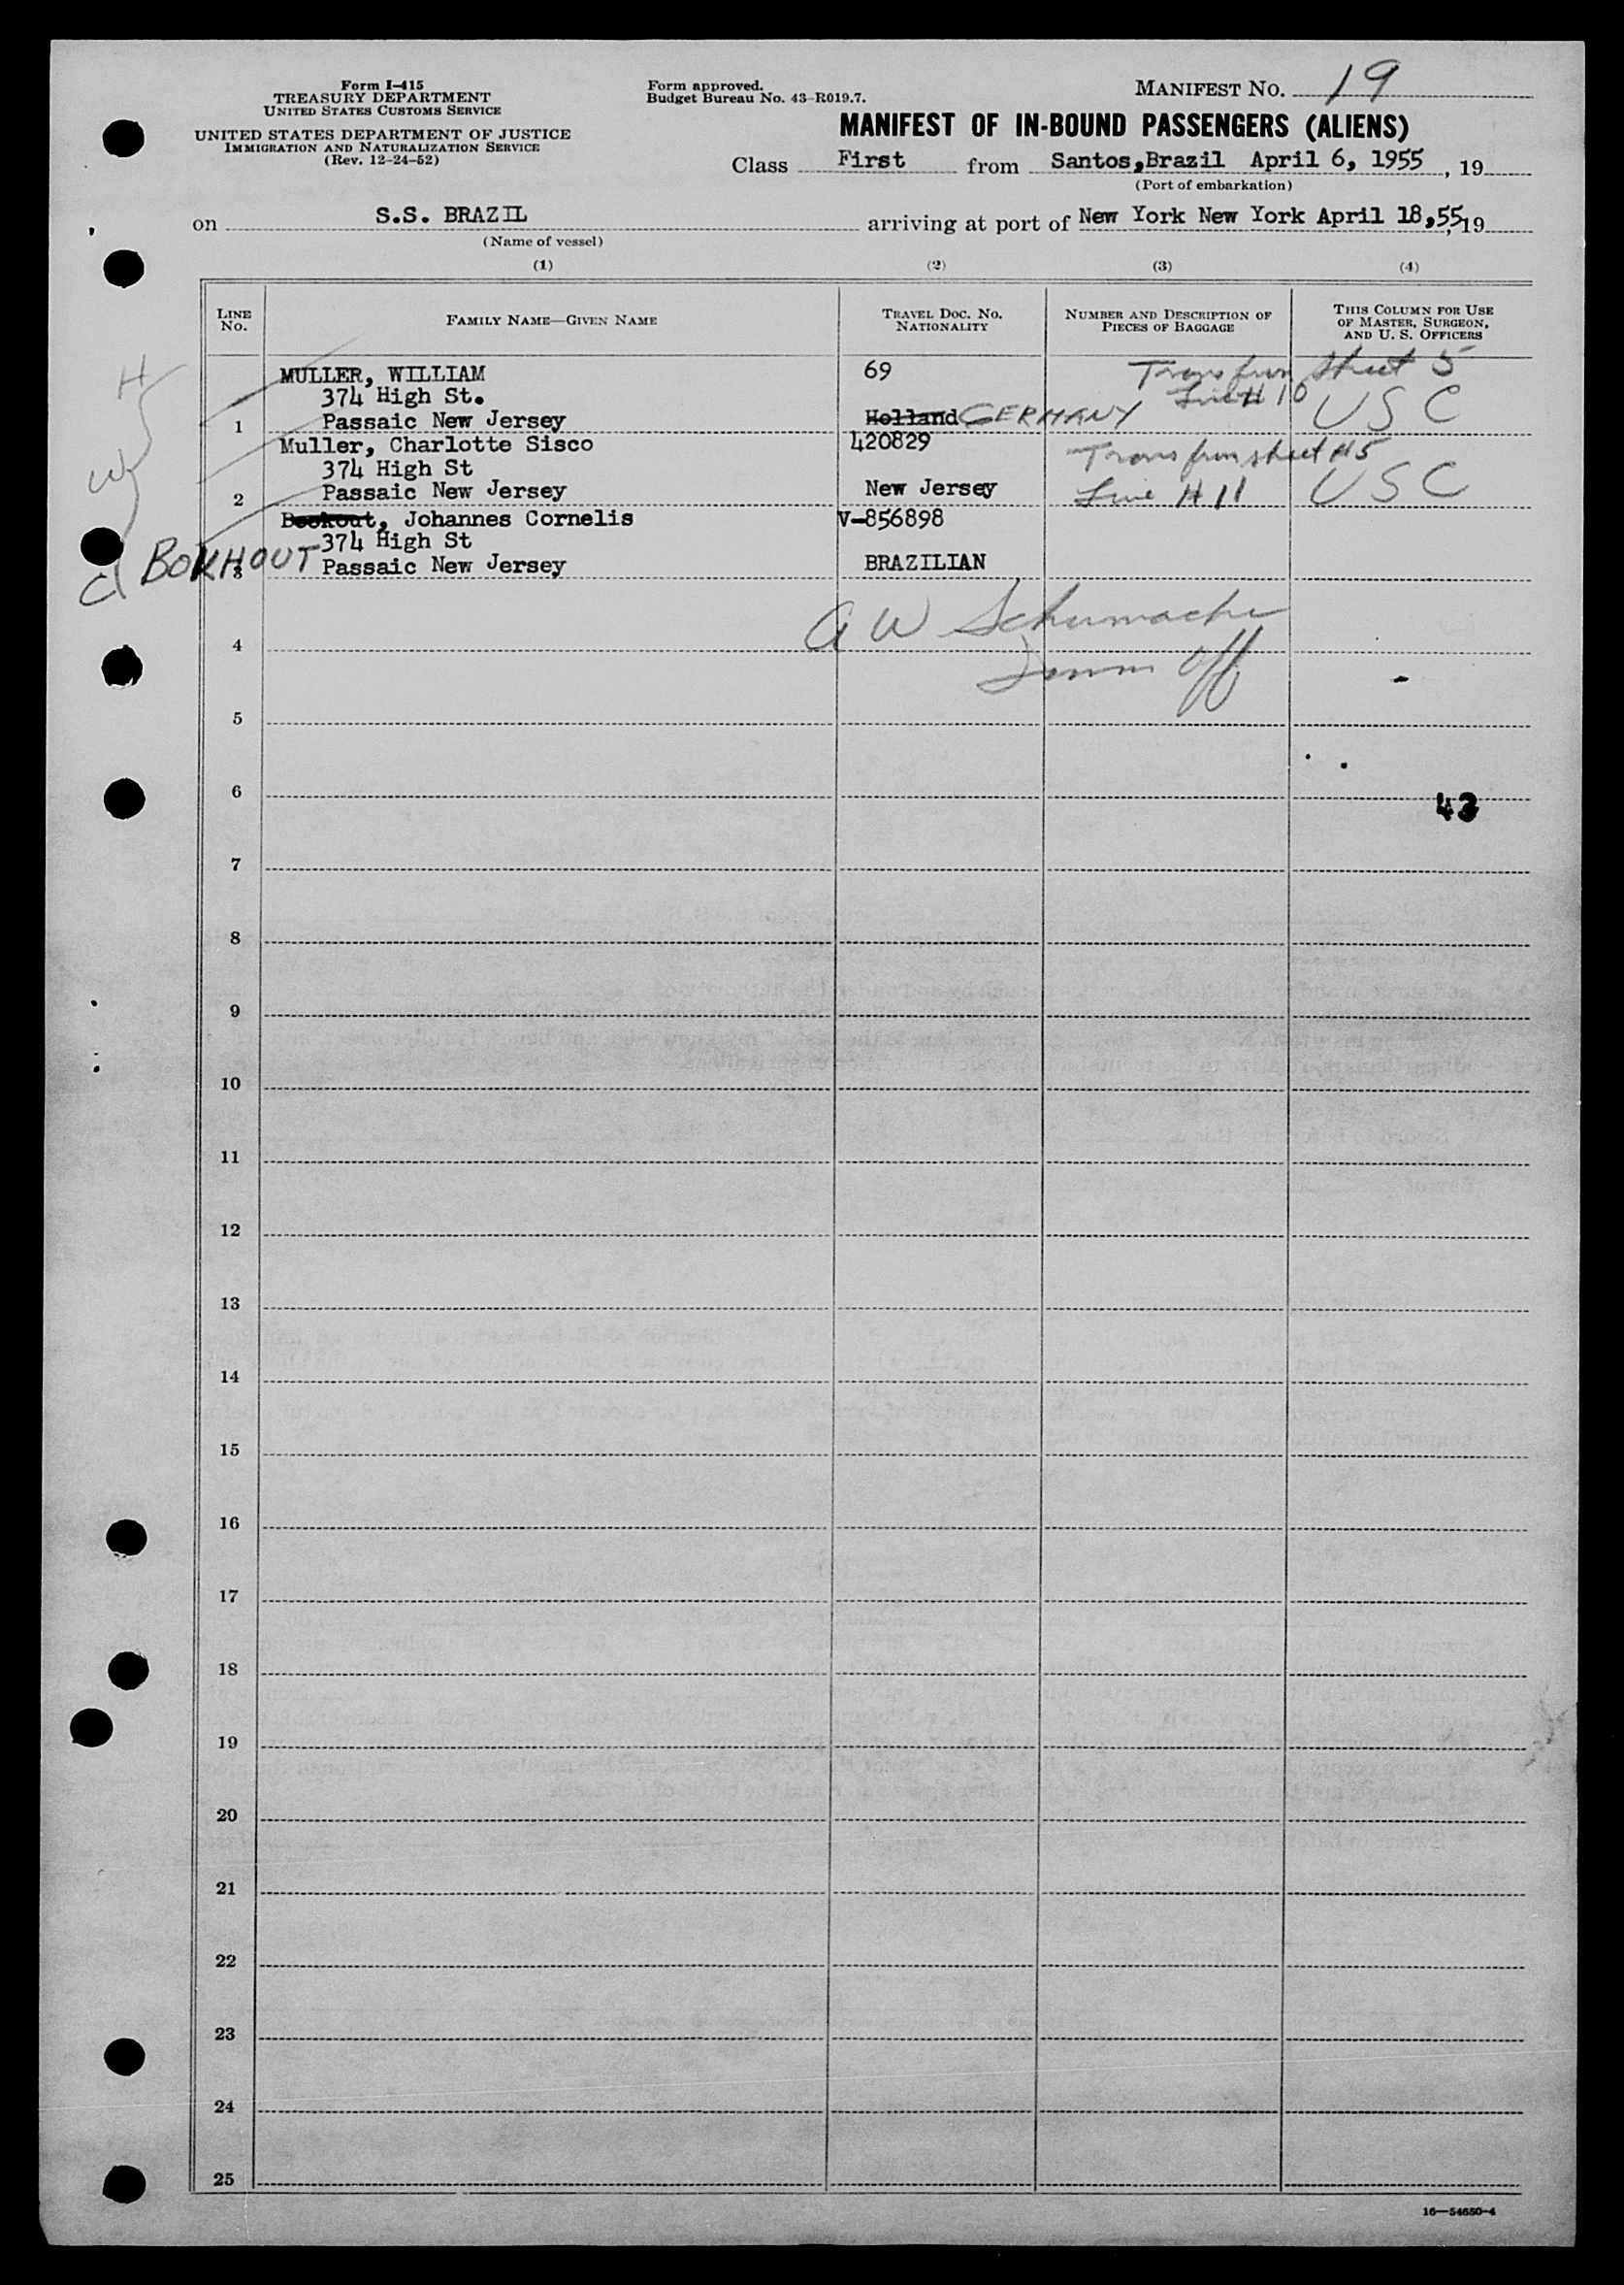 Form I-415
TREASURY DEPARTMENT
UNITED STATES CUSTOMS SERVICE
UNITED STATES DEPARTMENT OF JUSTICE
IMMIGRATION AND NATURALIZATION SERVICE
(Rev. 12-24-52)
Form approved.
Budget Bureau No. 43-R019.7.
MANIFEST NO. 19
MANIFEST OF IN-BOUND PASSENGERS (ALIENS)
Class First from Santos,Brazil April 6, 1955, 19
(Port of embarkation)
on S.S. BRAZIL arriving at port of New York New York April 18,55, 19
(Name of vessel)
(1) (2) (3) (4)
LINE No. FAMILY NAME—GIVEN NAME TRAVEL DOC. NO. NATIONALITY NUMBER AND DESCRIPTION OF PIECES OF BAGGAGE THIS COLUMN FOR USE OF MASTER, SURGEON, AND U. S. OFFICERS
H MULLER, WILLIAM 69 Trans from sheet 5
374 High St. Line # 10
1 Passaic New Jersey Holland GERMANY USC
Muller, Charlotte Sisco 420829 Trans from sheet #5
W 374 High St
2 Passaic New Jersey New Jersey Line # 11 USC
Bookout, Johannes Cornelis V-856898
BOKHOUT 374 High St
C 3 Passaic New Jersey BRAZILIAN
A W Schumacher
4
Imm Off
5
6
43
7
8
9
10
11
12
13
14
15
16
17
18
19
20
21
22
23
24
25
16—54650-4